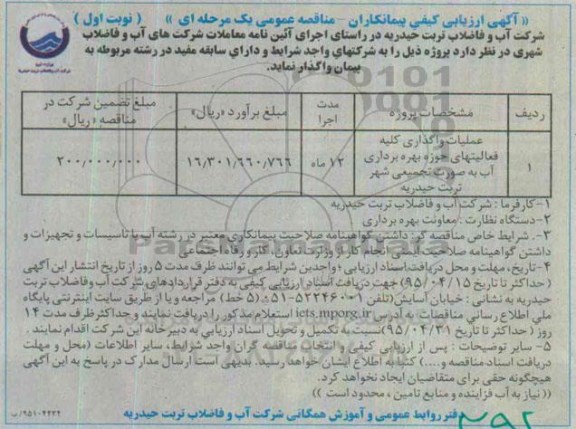 « آگهی ارزیابی کیفی پیمانکاران - مناقصه عمومی یک مرحله ای » ( نوبت اول )
شرکت آب و فاضلاب تربت حیدریه در راستای اجرای آئین نامه معاملات شرکت های آب و فاضلاب
شهری در نظر دارد پروژه ذیل را به شرکتهای واجد شرایط و دارای سابقه مفید در رشته مربوطه به
پیمان واگذار نماید.
ردیف مشخصات پروژه مدت اجرا مبلغ برآورد «ریال» مبلغ تضمین شرکت در مناقصه «ریال»
۱ عملیات واگذاری کلیه فعالیتهای حوزه بهره برداری آب به صورت تجمیعی شهر تربت حیدریه ۱۲ ماه ۱۶,۳۰۱,۶۶۰,۷۶۶ ۲۰۰,۰۰۰,۰۰۰
۱-کارفرما : شرکت آب و فاضلاب تربت حیدریه
۲-دستگاه نظارت : معاونت بهره برداری
۳- شرایط خاص مناقصه گر: داشتن گواهینامه صلاحیت پیمانکاری معتبر در رشته آب یا تاسیسات و تجهیزات و
داشتن گواهینامه صلاحیت ایمنی انجام کار از وزارت تعاون، کار و رفاه اجتماعی
۴-تاریخ، مهلت و محل دریافت اسناد ارزیابی : واجدین شرایط می توانند ظرف مدت ۵ روز از تاریخ انتشار این آگهی
(حداکثر تا تاریخ ۹۵/۰۴/۱۵) جهت دریافت اسناد ارزیابی کیفی به دفتر قراردادهای شرکت آب و فاضلاب تربت
حیدریه به نشانی : خیابان آسایش (تلفن ۱-۵۲۲۴۶۰-۰۵۱ (۵ خط) مراجعه و یا از طریق سایت اینترنتی پایگاه
ملی اطلاع رسانی مناقصات به آدرس iets.mporg.ir استعلام مذکور را دریافت نمایند و حداکثر ظرف مدت ۱۴
روز ( حداکثر تا تاریخ ۹۵/۰۴/۳۱) نسبت به تکمیل و تحویل اسناد ارزیابی به دبیرخانه این شرکت اقدام نمایند .
۵- سایر توضیحات : پس از ارزیابی کیفی و انتخاب مناقصه گران واجد شرایط، سایر اطلاعات (محل و مهلت
دریافت اسناد مناقصه و....) کتبا به اطلاع ایشان خواهد رسید. بدیهی است ارسال مدارک در پاسخ به این آگهی
هیچگونه حقی برای متقاضیان ایجاد نخواهد کرد.
(( نیاز به آب فزاینده و منابع تامین ، محدود است ))
دفتر روابط عمومی و آموزش همگانی شرکت آب و فاضلاب تربت حیدریه